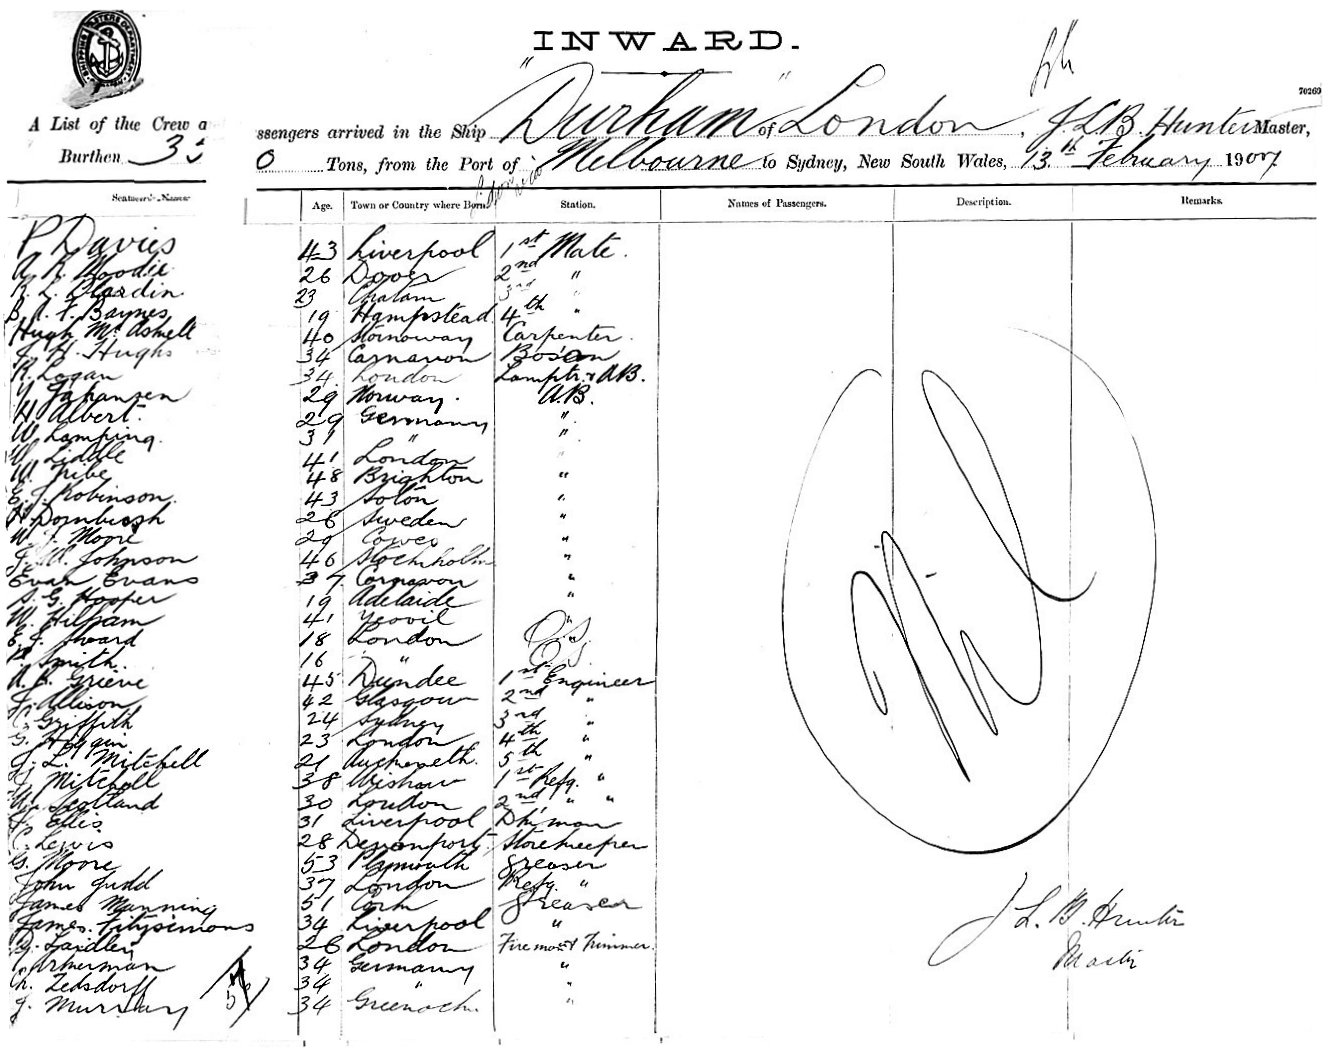 INWARD.
70269
A List of the Crew a ssengers arrived in the Ship "Durham" of London, J. L. B. Hunter Master,
Burthen 0 Tons, from the Port of Melbourne to Sydney, New South Wales, 13th February 1907
Age. Town or Country where Born. Station. Names of Passengers. Description. Remarks.
P. Davies 43 Liverpool 1st Mate.
A. R. Moodie 26 Dover 2nd "
R. L. 23 Chatam 3rd "
B. A. F. Baynes 19 Hampstead 4th "
Hugh Mc Askell 40 Stornoway Carpenter.
J. H. Hughs 34 Carnarvon Bosan
R. Logan 34 London Lamptr. & AB.
Y. Johansen 29 Norway. A.B.
H. Albert. 29 Germany "
W. Lamping. 31 " "
W. Liddle 41 London "
W. Tribe 48 Brighton "
E. J. Robinson. 43 "
H. Dornbusch 26 Sweden "
W. J. Moore 29 Cowes "
J. W. Johnson 46 Stockholm "
Evan Evans 37 Carnavon "
S. G. Hooper 19 Adelaide "
W. 41 Yeovil "
E. J. 18 London O.S.
Smith. 16 " O.S.
A. B. Grieve 45 Dundee 1st Engineer
J. Allison 42 Glasgow 2nd "
C. Griffith 24 Sydney 3rd "
G. Higgin 23 London 4th "
J. L. Mitchell 21 5th "
J. Mitchell 38 Wishaw 1st Refg. "
W. Scotland 30 London 2nd " "
J. Ellis 31 Liverpool Dkyman
C. Lewis 28 Devonport Storekeeper
G. Moore 53 Plymouth Greaser
John Judd 37 London Refg. "
James Manning 51 Cork Greaser
James Fitzsimons 34 Liverpool "
G. Laidley 26 London Fireman & Trimmer.
34 Germany "
Ch. Zedsdorff 34 " "
J. Murray 34 Greenock. "
Nil
J. L. B. Hunter
Master